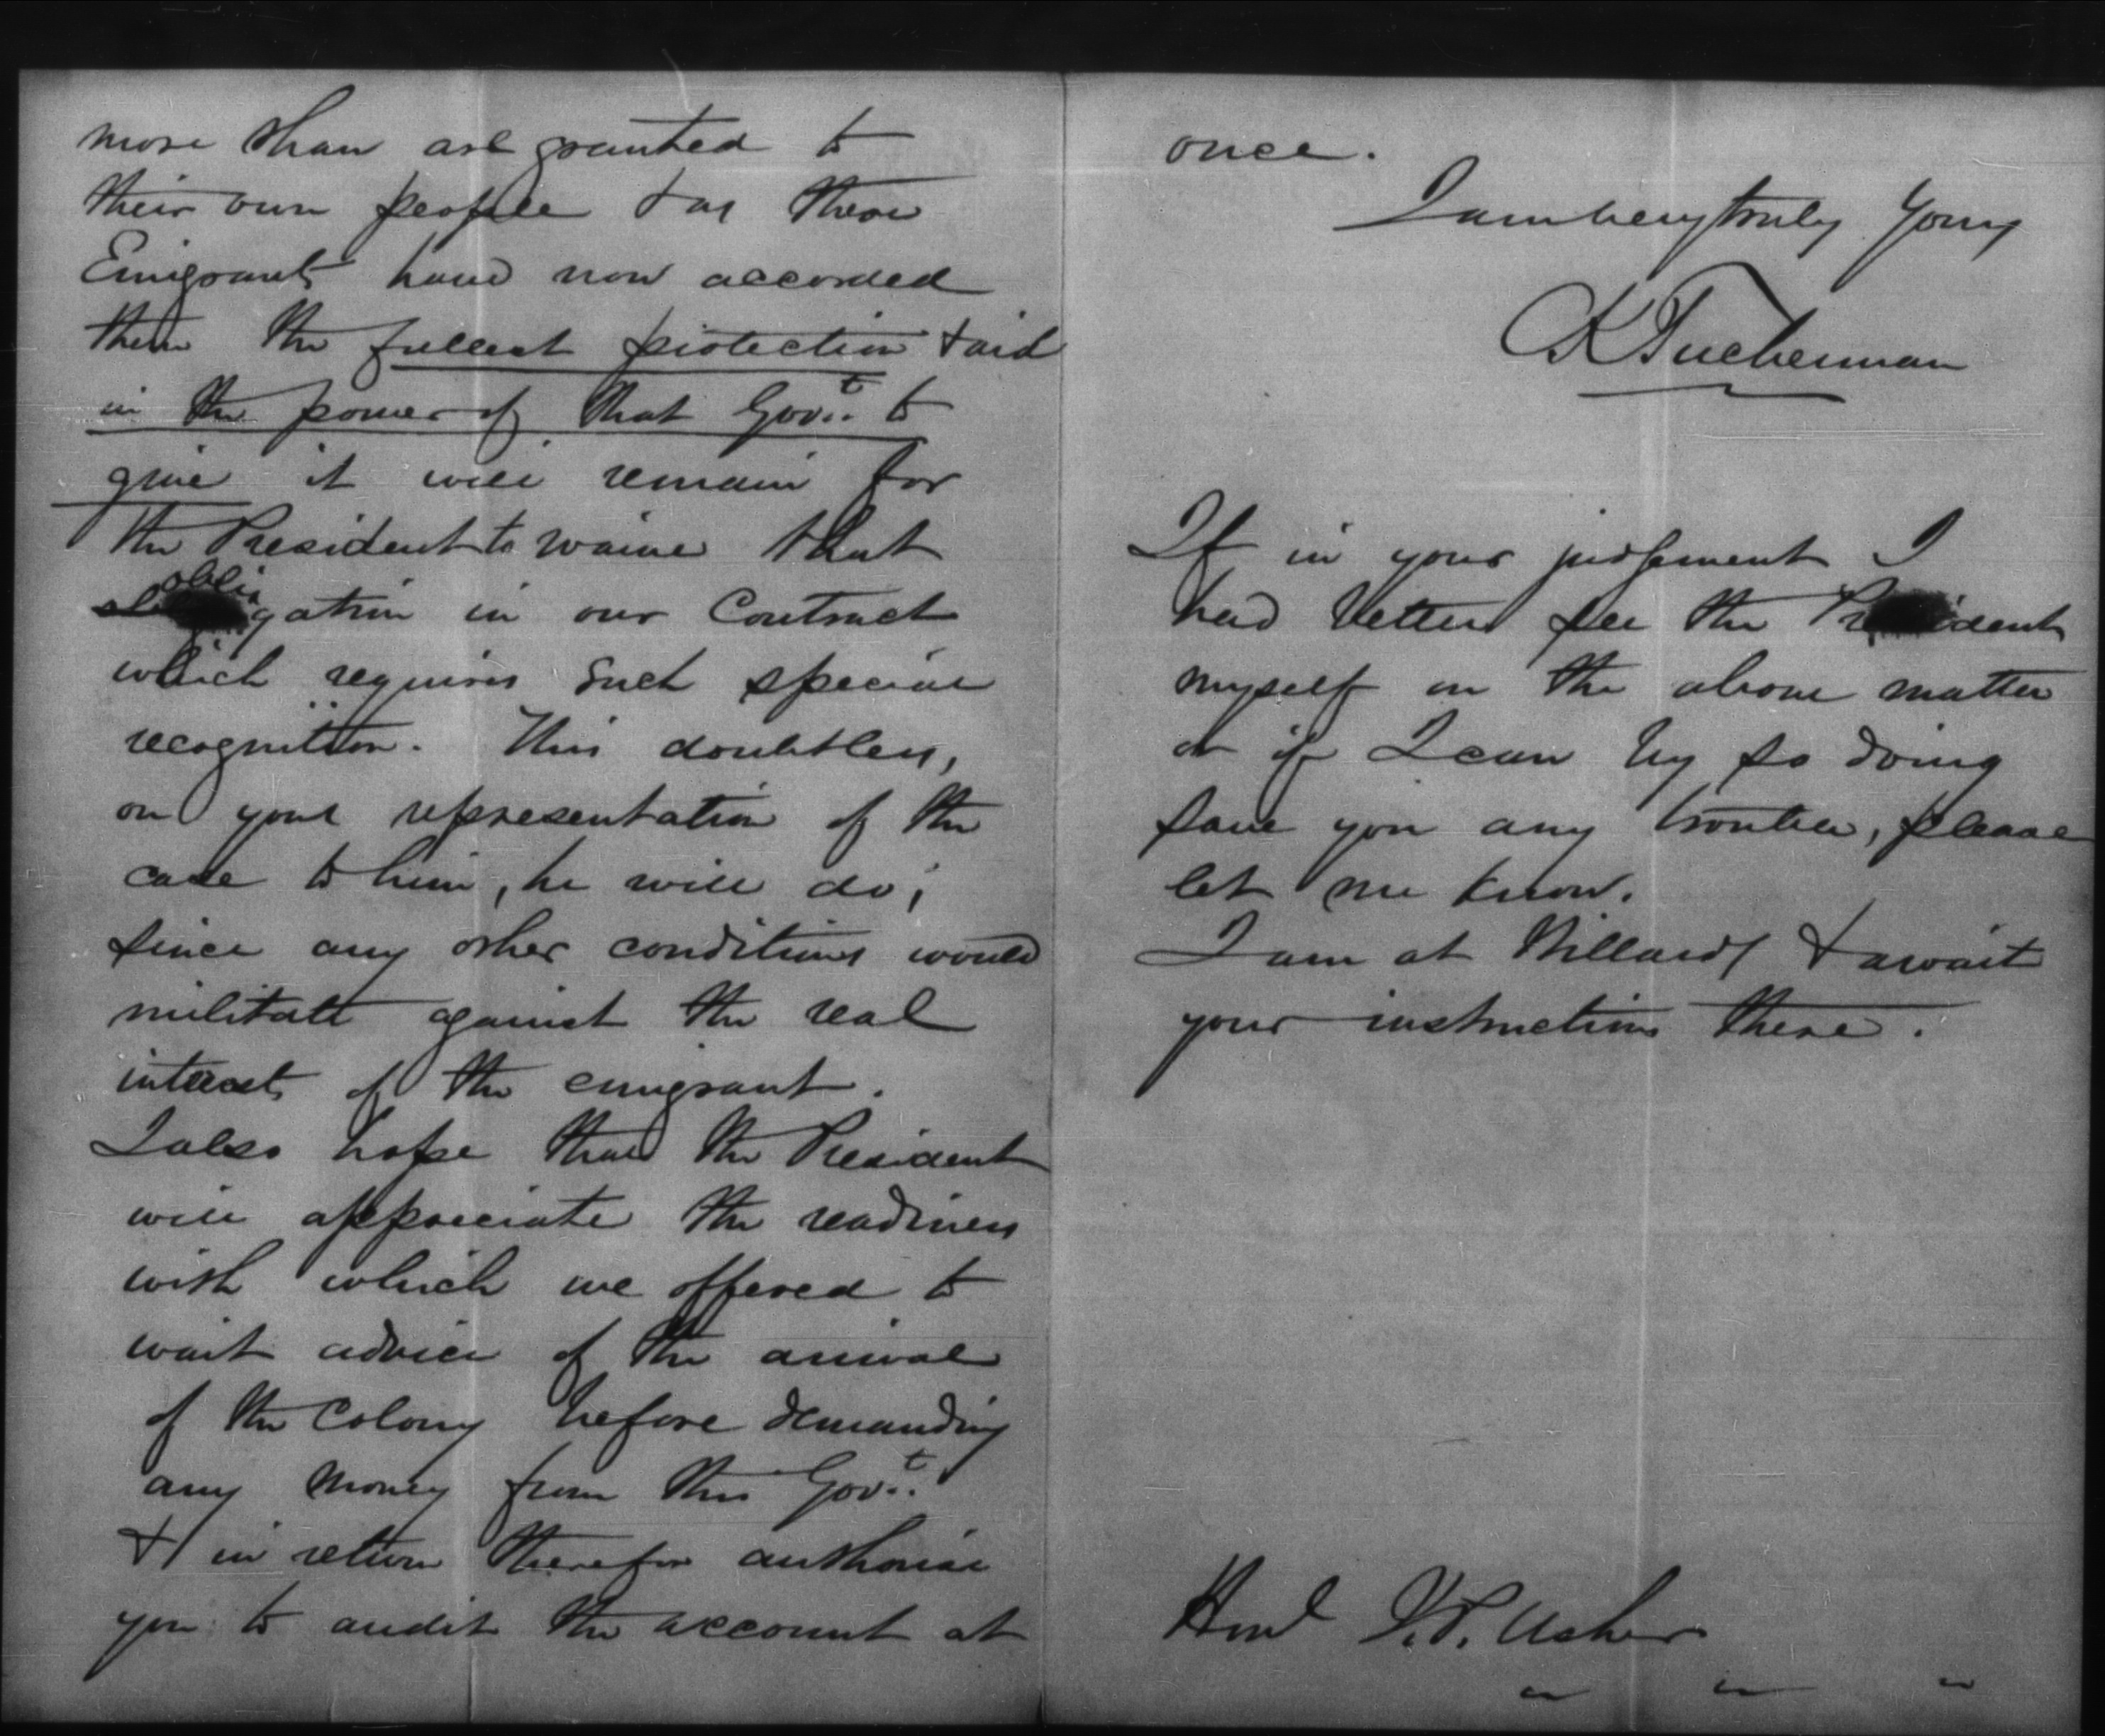 more than are granted to
their own people & as these
Emigrants have now accorded
them the fullest protection & aid
in the power of that Govt. to
give it will remain for
the President to waive that
obligation in our Contract
which requires such special
recognition. This doubtless,
on your representation of the
case to him, he will do;
since any other conditions would
militate against the real
interests of the emigrant.
I also hope that the President
will appreciate the readiness
with which we offered to
wait advice of the arrival
of the Colony before demanding
any money from this Govt.
& in return therefor authorise
you to audit the account at
once.
I am very truly Yours
CK Tuckerman
If in your judgement I
had better see the President
myself on the above matter
or if I can by so doing
save you any trouble, please
let me know.
I am at Willards & await
your instructions there.
Honl J. P. Usher